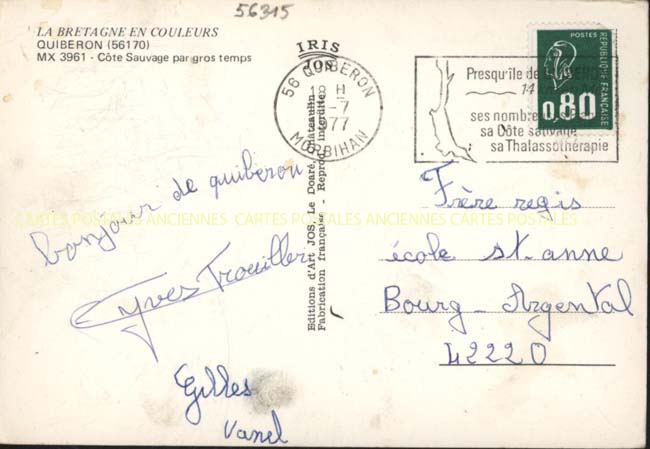 56315
LA BRETAGNE EN COULEURS
QUIBERON (56170)
MX 3961 - Côte Sauvage par gros temps
IRIS
JOS
Editions d'Art JOS, Le Doaré, Châteaulin
Fabrication française - Reprod. interdite
56 QUIBERON
H
-7
77
MORBIHAN
Presqu'île de
14
ses nombre
sa Côte sauvage
sa Thalassothérapie
POSTES
REPUBLIQUE FRANÇAISE
0,80
bonjour de quiberon
yves Trouiller
Gilles
Vanel
Frère regis
école st. anne
Bourg-Argental
42220
CARTES POSTALES ANCIENNES CARTES POSTALES ANCIENNES CARTES POSTALES